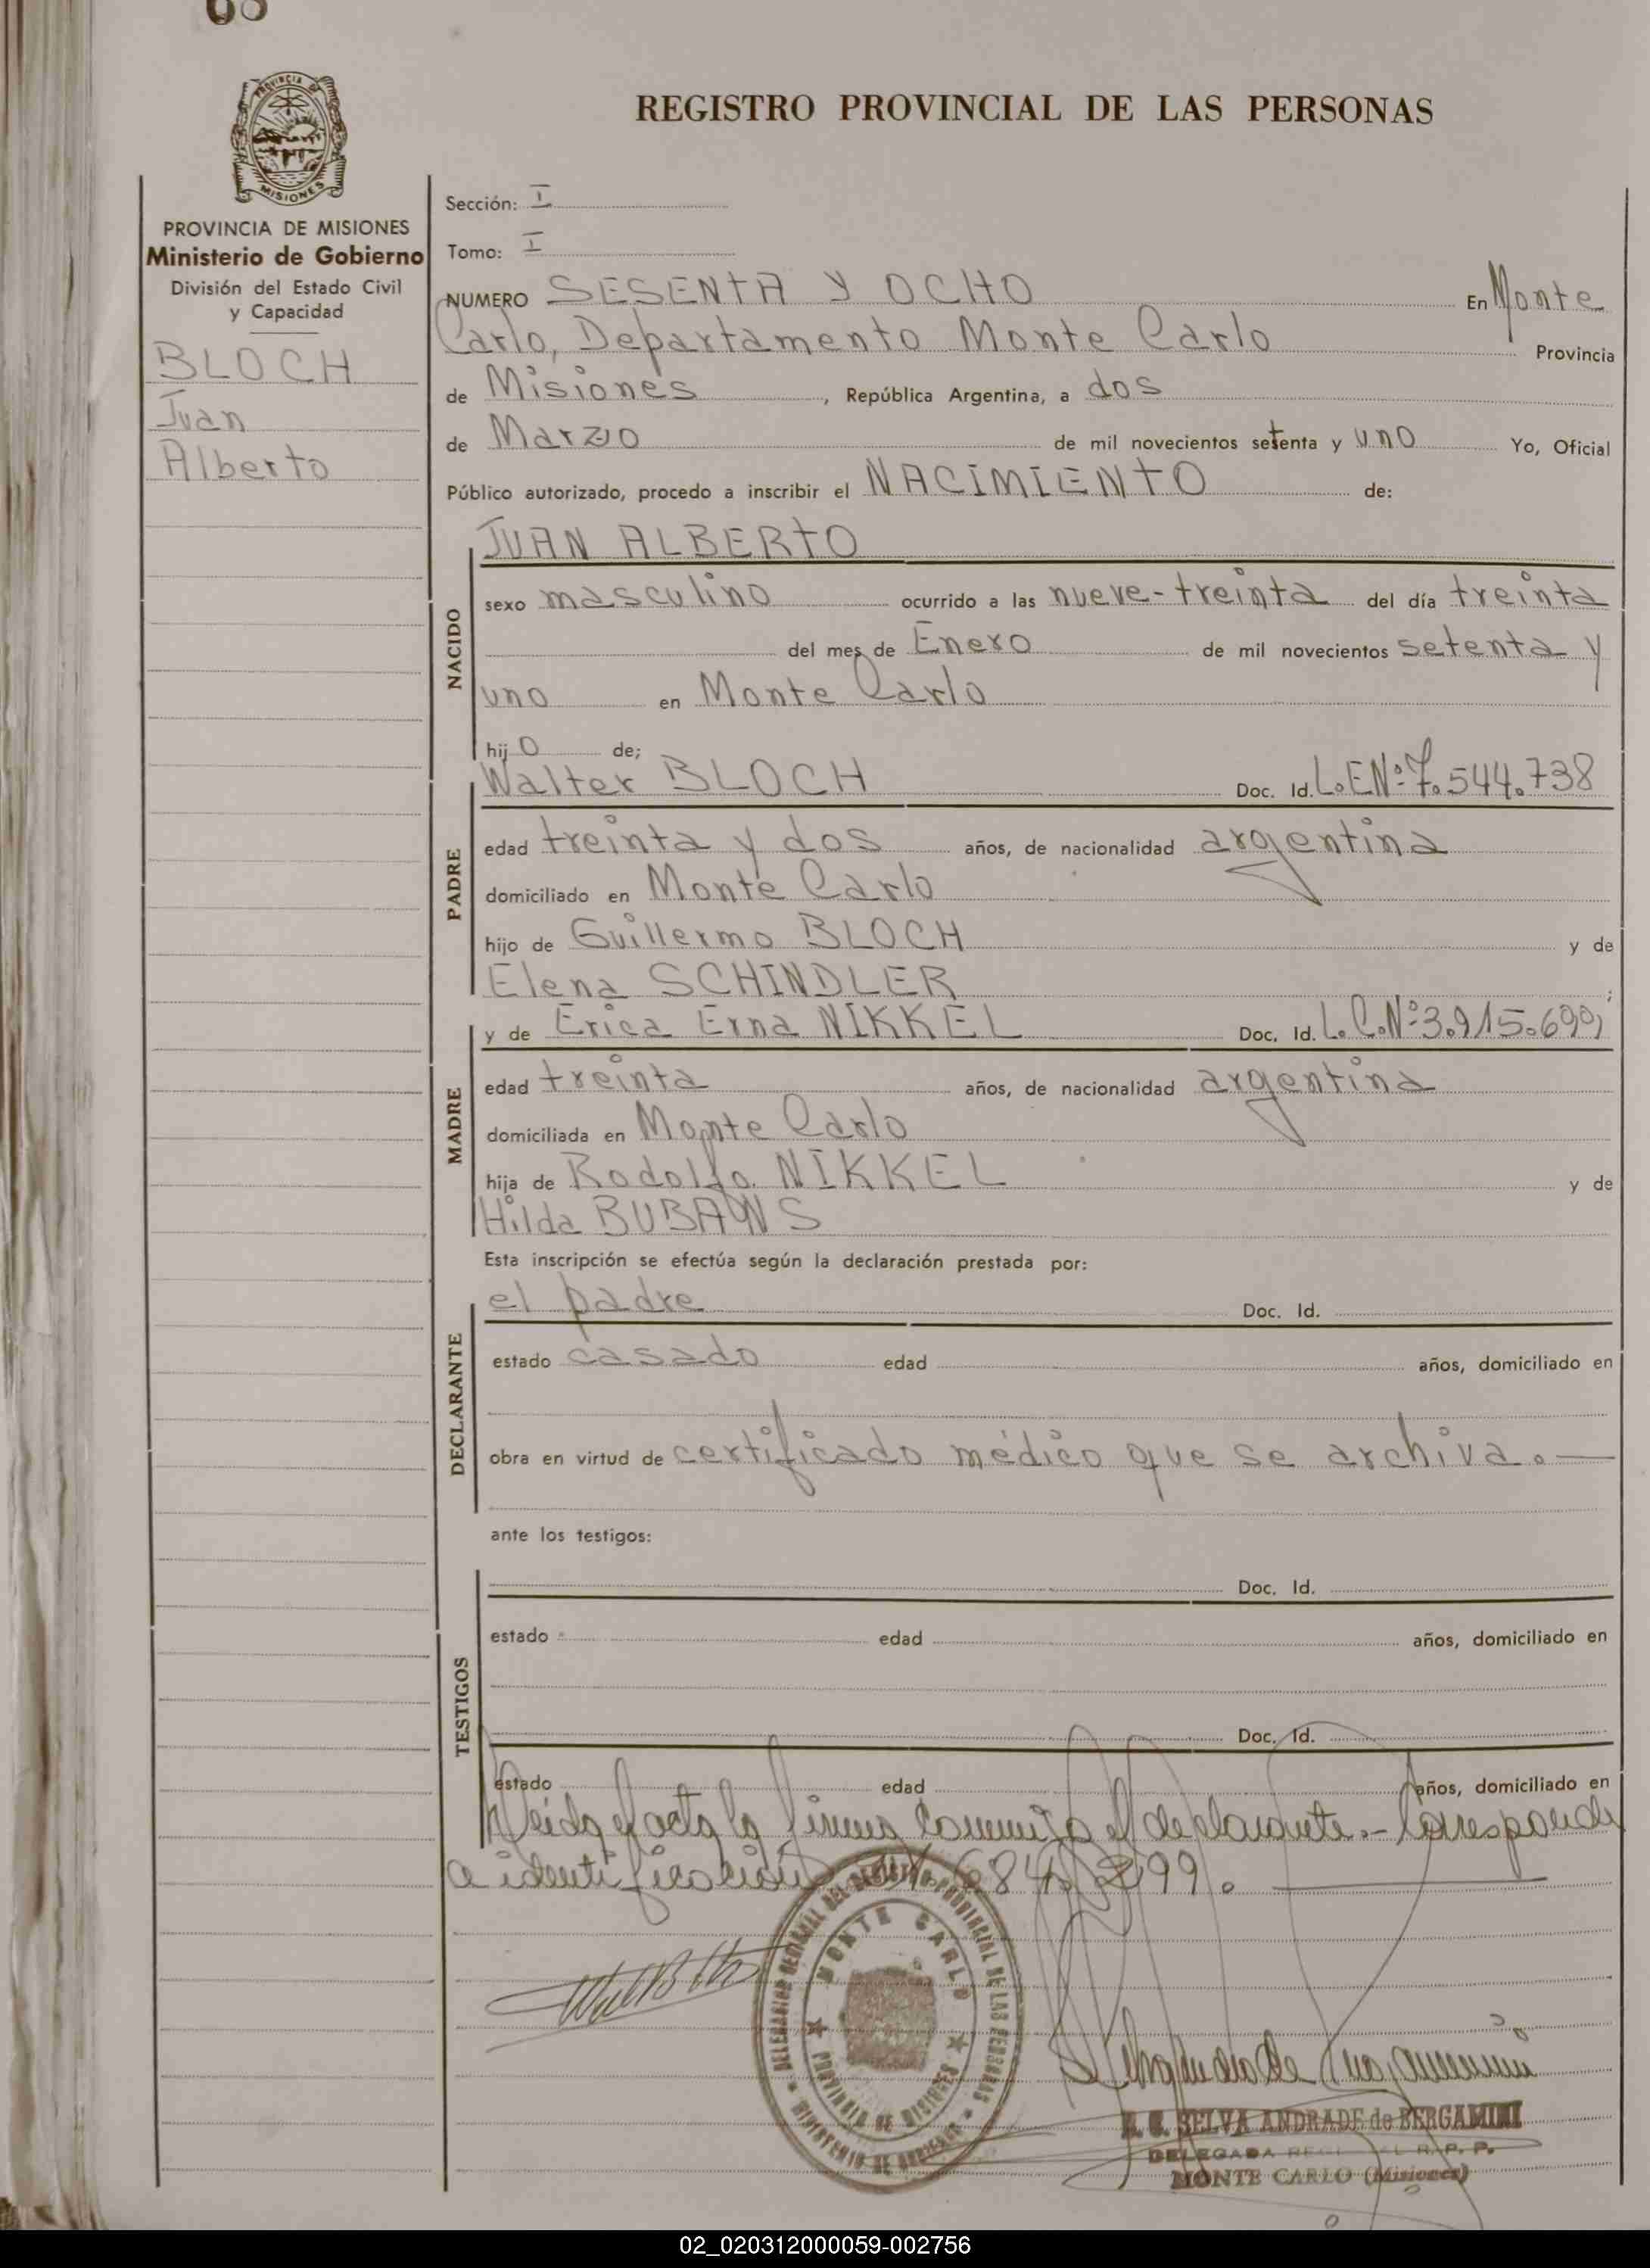 68
PROVINCIA DE
MISIONES
PROVINCIA DE MISIONES
Ministerio de Gobierno
División del Estado Civil
y Capacidad
BLOCH
Juan
Alberto
REGISTRO PROVINCIAL DE LAS PERSONAS
Sección: I
Tomo: I
NUMERO SESENTA Y OCHO En Monte
Carlo, Departamento Monte Carlo Provincia
de Misiones, República Argentina, a dos
de Marzo de mil novecientos setenta y uno Yo, Oficial
Público autorizado, procedo a inscribir el NACIMIENTO de:
NACIDO
JUAN ALBERTO
sexo masculino ocurrido a las nueve-treinta del día treinta
del mes de Enero de mil novecientos setenta y
uno en Monte Carlo
hijo de;
PADRE
Walter BLOCH Doc. Id. L.E.Nº 7.544.738
edad treinta y dos años, de nacionalidad argentina
domiciliado en Monte Carlo
hijo de Guillermo BLOCH y de
Elena SCHINDLER;
MADRE
y de Erica Erna NIKKEL Doc. Id. L.C.Nº 3.915.699,
edad treinta años, de nacionalidad argentina
domiciliada en Monte Carlo
hija de Rodolfo NIKKEL y de
Hilda
Esta inscripción se efectúa según la declaración prestada por:
DECLARANTE
el padre Doc. Id.
estado casado edad años, domiciliado en
obra en virtud de certificado médico que se archiva.—
ante los testigos:
TESTIGOS
Doc. Id.
estado edad años, domiciliado en
Doc. Id.
estado edad años, domiciliado en
Leida el acta la firma conmigo el declarante.- Corresponde
a identificación 21.684.899.
DELEGACION REGIONAL DEL REGISTRO PROVINCIAL DE LAS PERSONAS
MINISTERIO DE GOBIERNO
MONTE CARLO
PROVINCIA DE MISIONES
SELVA ANDRADE de BERGAMINI
DELEGADA R. P. P.
MONTE CARLO (Misiones)
02_020312000059-002756